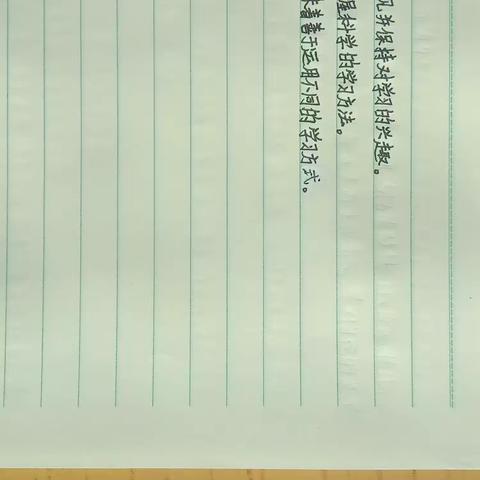 并保持对学习的兴趣。
握科学的学习方法。
着善于运用不同的学习方式。